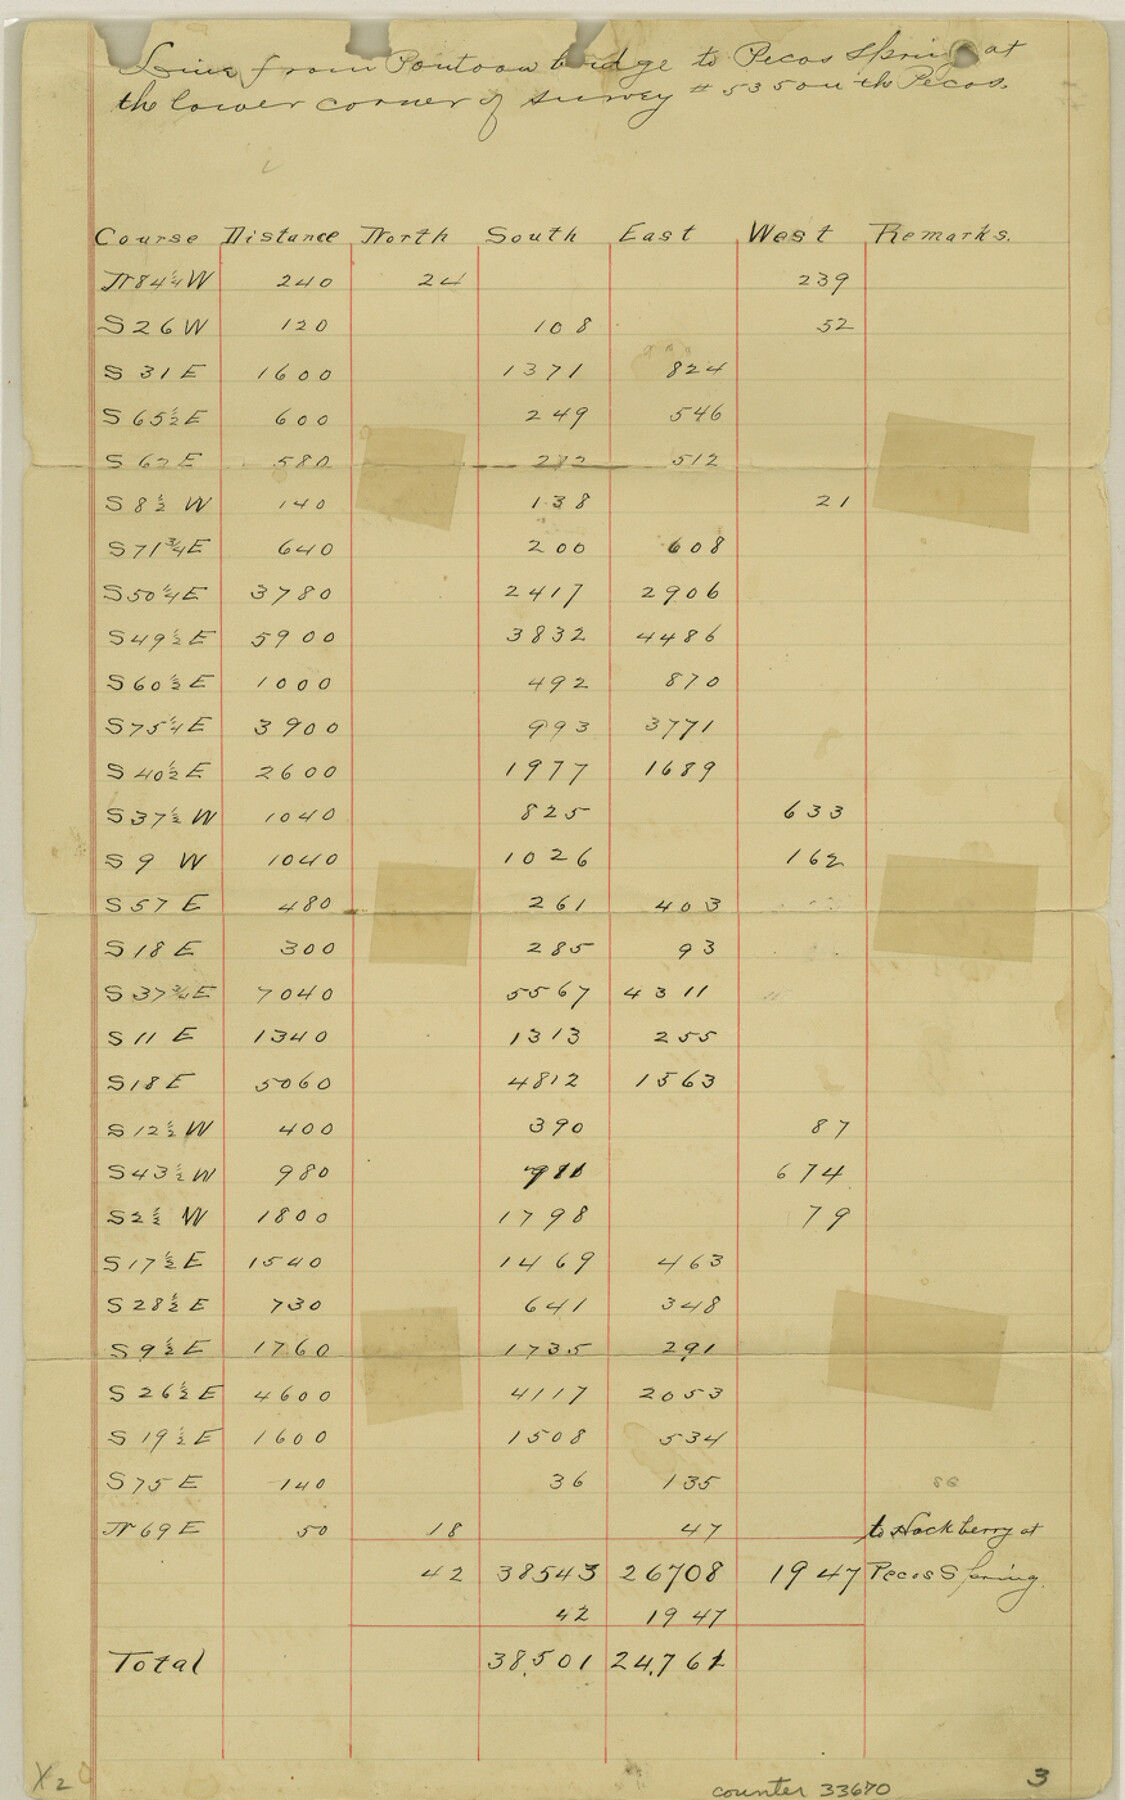 Line from Pontoon bridge to Pecos Spring at
the lower corner of survey # 53 South Pecos.
Course Distance North South East West Remarks.
N 84 1/4 W 240 24 239
S 26 W 120 108 52
S 31 E 1600 1371 824
S 65 1/2 E 600 249 546
S 62 E 580 272 512
S 8 1/2 W 140 138 21
S 71 3/4 E 640 200 608
S 50 1/4 E 3780 2417 2906
S 49 1/2 E 5900 3832 4486
S 60 1/2 E 1000 492 870
S 75 1/4 E 3900 993 3771
S 40 1/2 E 2600 1977 1689
S 37 1/2 W 1040 825 633
S 9 W 1040 1026 162
S 57 E 480 261 403
S 18 E 300 285 93
S 37 3/4 E 7040 5567 4311
S 11 E 1340 1313 255
S 18 E 5060 4812 1563
S 12 1/2 W 400 390 87
S 43 1/2 W 980 674
S 2 1/2 W 1800 1798 79
S 17 1/2 E 1540 1469 463
S 28 1/2 E 730 641 348
S 9 1/2 E 1760 1735 291
S 26 1/2 E 4600 4117 2053
S 19 1/2 E 1600 1508 534
S 75 E 140 36 135
N 69 E 50 18 47 to Hackberry at
42 38543 26708 1947 Pecos Spring.
42 1947
Total 38,501 24,761
X2
counter 33670
3